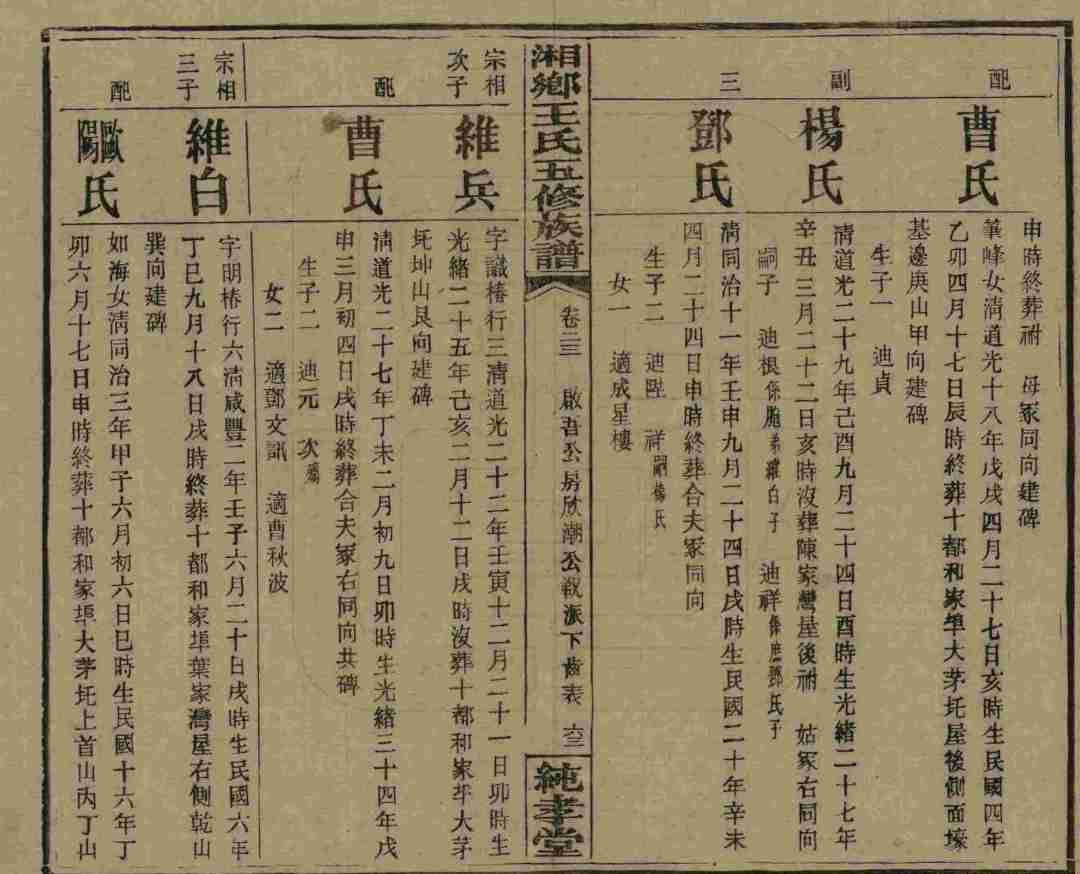 申時終葬祔　母冢同向建碑
配
曹氏
筆峰女清道光十八年戊戌四月二十七日亥時生民國四年
乙卯四月十七日辰時終葬十都和家埠大茅坵屋後側面壕
基邊庚山甲向建碑
生子一　迪貞
副
楊氏
清道光二十九年己酉九月二十四日酉時生光緒二十七年
辛丑三月二十二日亥時沒葬陳家灣屋後祔　姑冢右同向
嗣子　迪根係胞弟維白子　迪祥係庶鄧氏子
三
鄧氏
清同治十一年壬申九月二十四日戌時生民國二十年辛未
四月二十四日申時終葬合夫冢同向
生子二　迪陞　祥嗣楊氏
女一　適成星樓
湘鄉王氏五修族譜
卷二三　啟吾公房欣潮公毅派下齒表　六三
純孝堂
宗相
次子
維兵
字議椿行三清道光二十二年壬寅十二月二十一日卯時生
光緒二十五年己亥二月十二日戌時沒葬十都和家坪大茅
坵坤山艮向建碑
配
曹氏
清道光二十七年丁未二月初九日卯時生光緒三十四年戊
申三月初四日戌時終葬合夫冢右同向共碑
生子二　迪元　次殤
女二　適鄧文訊　適曹秋波
宗相
三子
維白
字明椿行六清咸豐二年壬子六月二十日戌時生民國六年
丁巳九月十八日戌時終葬十都和家埠葉家灣屋右側乾山
巽向建碑
配
歐陽氏
如海女清同治三年甲子六月初六日巳時生民國十六年丁
卯六月十七日申時終葬十都和家埠大茅坵上首山丙丁山